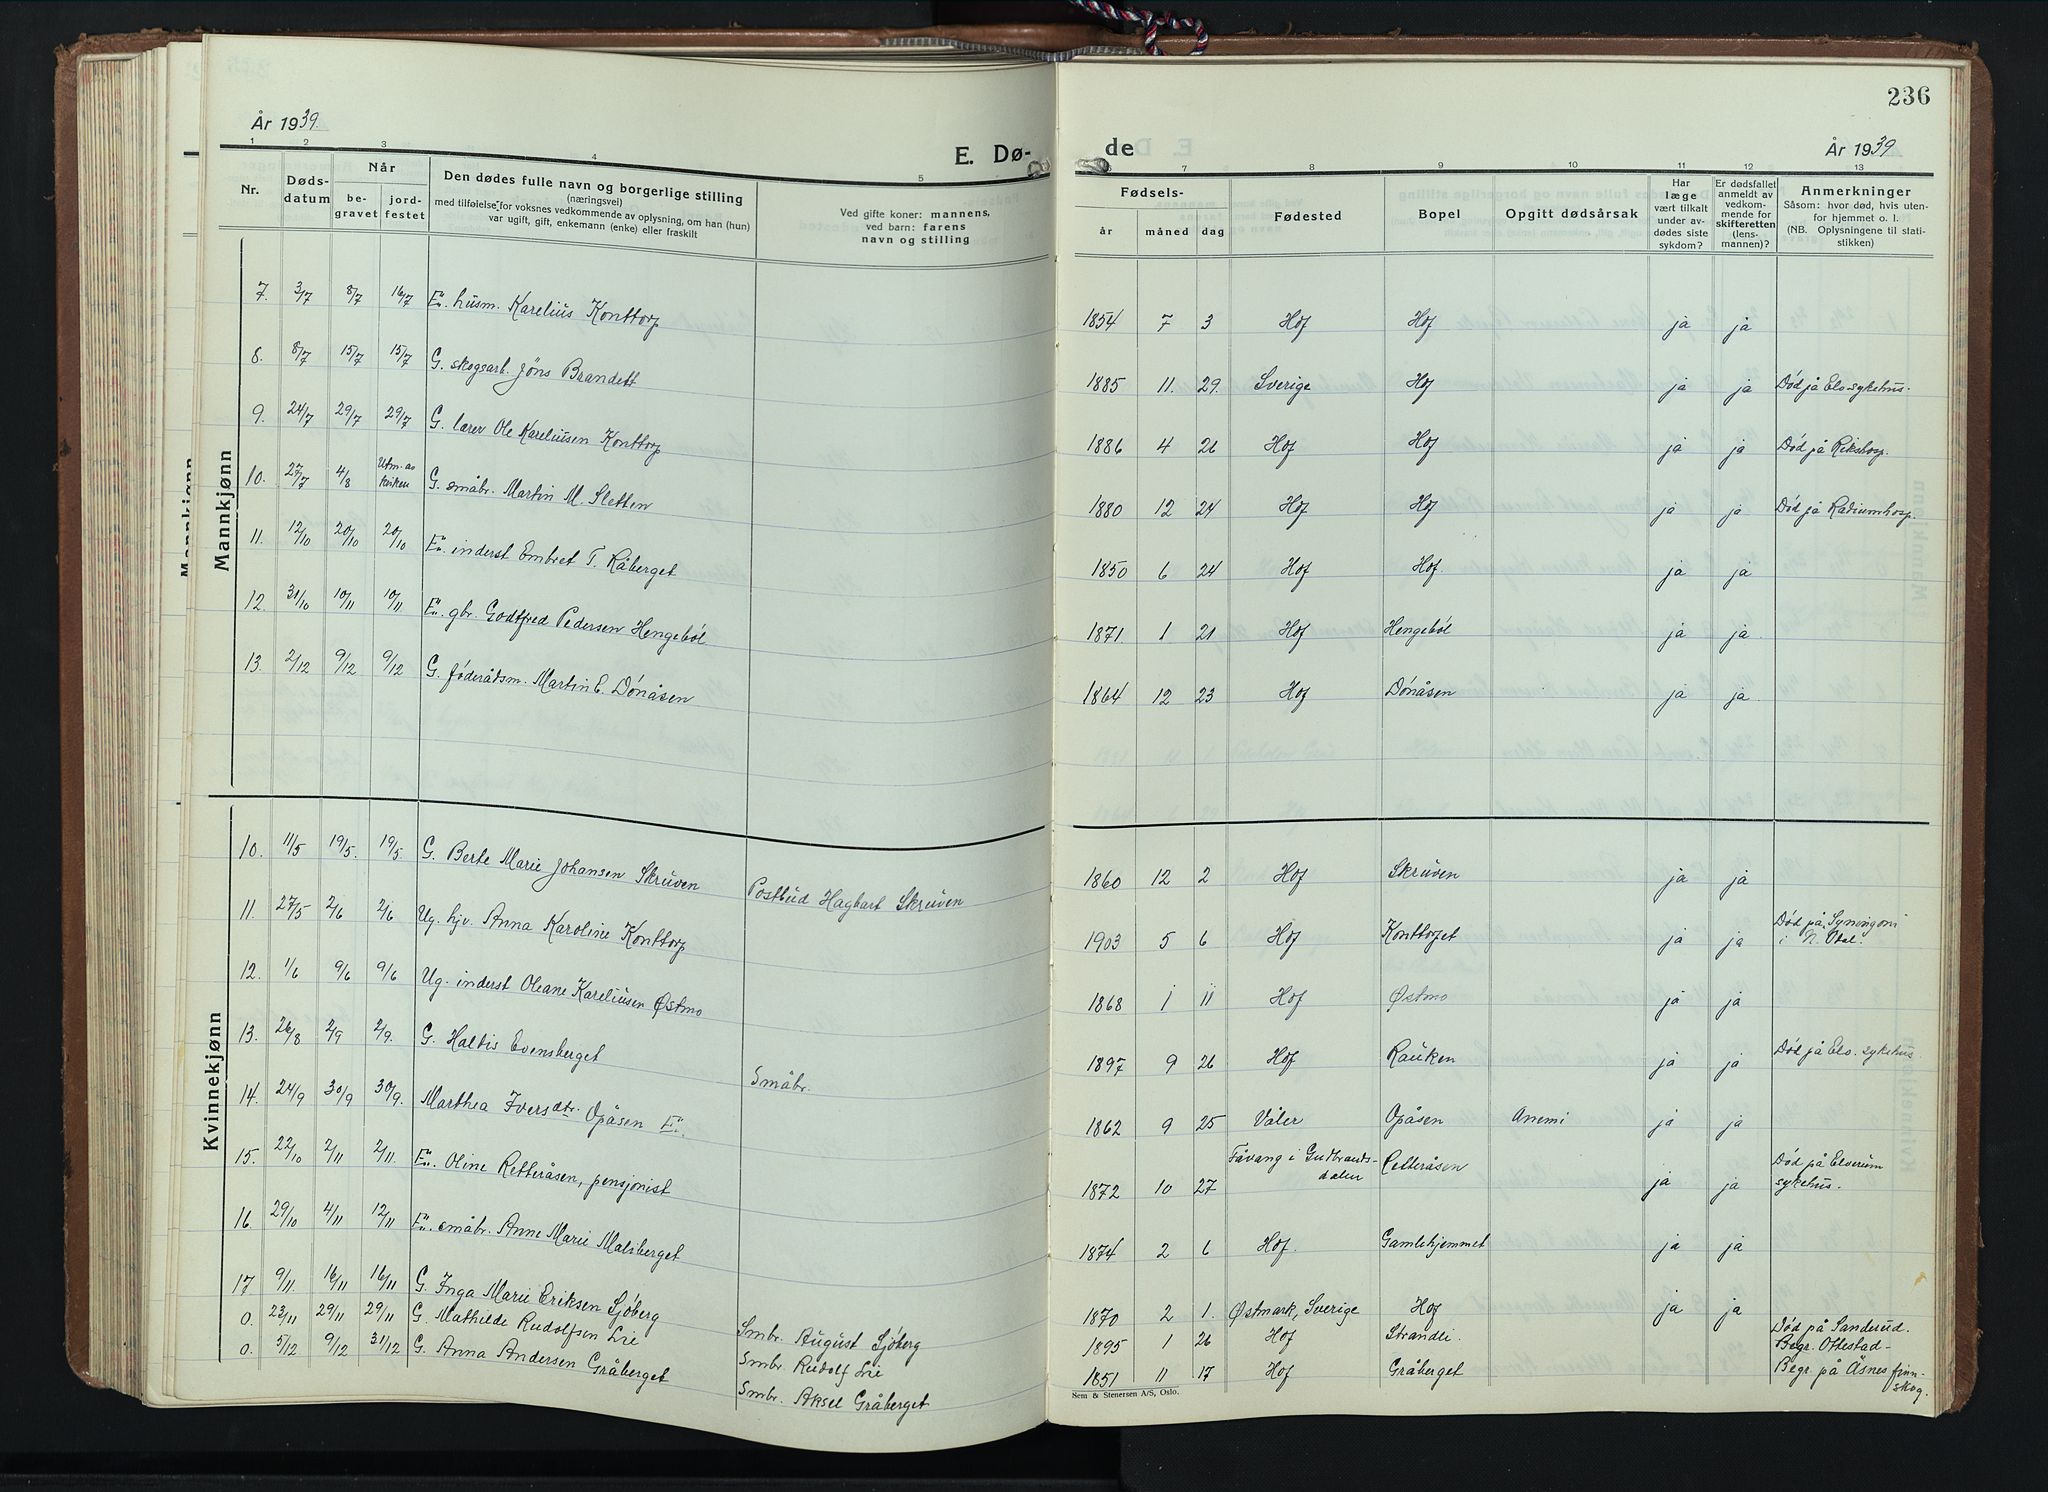 236
År 1939.
E. Dø-
de
År 1939
1 2 3 4 5 6 7 8 9 10 11 12 13
Nr.
Døds-
datum
Når
be-
gravet
jord-
festet
Den dødes fulle navn og borgerlige stilling
(næringsvei)
med tilføielse for voksnes vedkommende av oplysning, om han (hun)
var ugift, gift, enkemann (enke) eller fraskilt
Ved gifte koner: mannens,
ved barn: farens
navn og stilling
Fødsels-
år måned dag
Fødested
Bopel
Opgitt dødsårsak
Har
læge
vært tilkalt
under av-
dødes siste
sykdom?
Er dødsfallet
anmeldt av
vedkom-
mende for
skifteretten
(lens-
mannen)?
Anmerkninger
Såsom: hvor død, hvis uten-
for hjemmet o. l.
(NB. Oplysningene til stati-
stikken)
Mannkjønn
Mannkjønn
7. 3/7 8/7 16/7 En. husm. Karelius Konttorp 1854 7 3 Hof Hof ja ja
8. 8/7 15/7 15/7 G. skogsarb. Jöns Brandett 1885 11. 29. Sverige Hof ja ja Død på Elv. sykehus.
9. 24/7 29/7 29/7 G. lærer Ole Kareliusen Konttorp 1886 4 26 Hof Hof ja ja Død på Rikshosp.
10. 27/7 4/8 Utm. av kirken G. småbr. Martin M. Sletten 1880 12 24 Hof Hof ja ja Død på Radiumhosp.
11. 12/10 20/10 20/10 En. inderst Embret T. Råberget 1850 6 24 Hof Hof. ja ja
12. 31/10 10/11 10/11 En. gbr. Godtfred Pedersen Hengeból 1871. 1 21 Hof Hengeból ja ja
13. 2/12 9/12 9/12 G. føderådsm. Martin E. Dónåsen 1864 12 23 Hof Dónåsen ja ja
Kvinnekjønn
10. 11/5 19/5. 19/5. G. Berte Marie Johansen Skruven Postbud Hagbart Skruven 1860 12 2 Hof Skruven ja ja
11. 27/5 2/6 2/6 Ug. hjv. Anna Karoline Konttorp 1903 5 6 Hof Konttorpet ja ja Død på
i N. Odal.
12. 1/6 9/6 9/6 Ug. inderst Oleane Kareliusen Østmo 1868 1 11 Hof Østmo ja ja
13. 26/8 2/9 2/9. G. Haldis Evensberget Småbr. 1897 9 26 Hof Rauken ja ja Død på Elv. sykehus
14. 24/9 30/9 30/9. Marthea Iversdtr. Opåsen En. 1862 9 25 Våler Opåsen Anemi ja ja
15. 22/10 2/11 2/11. En. Oline Retteråsen, pensjonist 1872 10 27 Fåvang i Gudbrands-
dalen Retteråsen ja ja Død på Elverum
sykehus.
16. 29/10 4/11 12/11 En. småbr. Anne Marie Matsberget 1874 2 6 Hof. Gamlehjemmet ja ja
17 9/11. 16/11 16/11 G. Inga Marie Eriksen Sjöberg Smbr. August Sjöberg 1870 2 1. Østmark, Sverige Hof ja ja
0. 23/11 29/11 29/11 G. Mathilde Rudolfsen Lie Smbr. Rudolf Lie 1895 1 26 Hof Strandli. Død på Sanderud.
Begr. Ottestad-
0. 5/12 9/12 31/12 G. Anna Andersen Gråberget Smbr. Aksel Gråberget 1851 11 17 Hof Gråberget Begr. på Åsnes finn-
skog.
Sem & Stenersen A/S, Oslo.